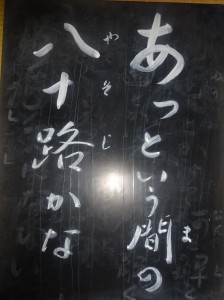 あっという間の
八十路かな
ま
やそじ